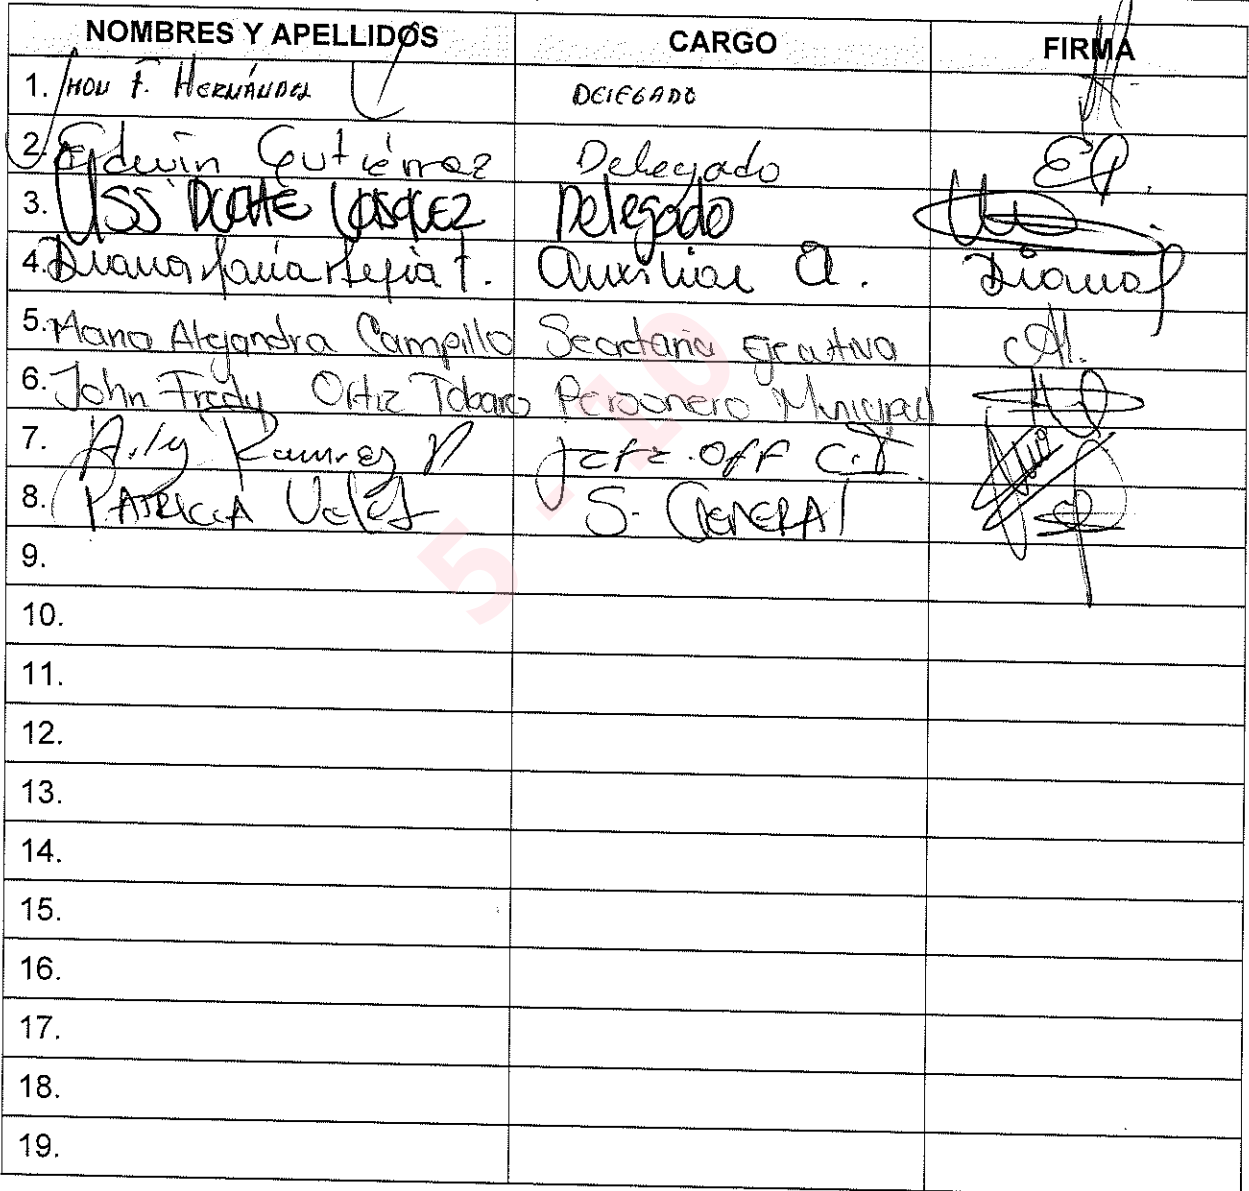 NOMBRES Y APELLIDOS CARGO FIRMA
1. Jhon F. HERNÁNDEZ DELEGADO
2. Edwin Gutiérrez Delegado EG.
3. DUARTE VÁSQUEZ Delegado
4. Diana María Mejía T. Auxiliar A. Diana
5. Maria Alejandra Campillo Secretaria Ejecutiva
6. John Fredy Ortiz Tobaro Personero Municipal
7. Ramirez Jefe Off C.I.
8. PATRICIA Velez S. GENERAL
9.
10.
11.
12.
13.
14.
15.
16.
17.
18.
19.
5 - 10